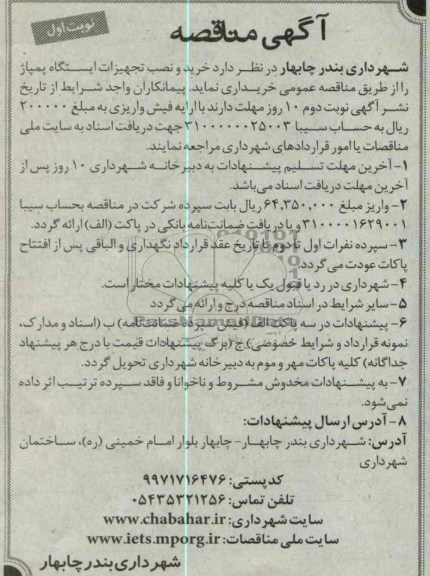 نوبت اول
آگهی مناقصه
شهرداری بندر چابهار در نظر دارد خرید و نصب تجهیزات ایستگاه پمپاژ
را از طریق مناقصه عمومی خریداری نماید. پیمانکاران واجد شرایط از تاریخ
نشر آگهی نوبت دوم ۱۰ روز مهلت دارند با ارایه فیش واریزی به مبلغ ۲۰۰۰۰۰
ریال به حساب سیبا ۳۱۰۰۰۰۰۰۲۵۰۰۳ جهت دریافت اسناد به سایت ملی
مناقصات یا امور قراردادهای شهرداری مراجعه نمایند.
۱- آخرین مهلت تسلیم پیشنهادات به دبیرخانه شهرداری ۱۰ روز پس از
آخرین مهلت دریافت اسناد می‌باشد.
۲- واریز مبلغ ۶۴,۳۵۰,۰۰۰ ریال بابت سپرده شرکت در مناقصه بحساب سیبا
۳۱۰۰۰۰۱۶۲۹۰۰۱ و یا دریافت ضمانت‌نامه بانکی در پاکت (الف) ارائه گردد.
۳- سپرده نفرات اول تا دوم تا تاریخ عقد قرارداد نگهداری و الباقی پس از افتتاح
پاکات عودت می گردد.
۴- شهرداری در رد یا قبول یک یا کلیه پیشنهادات مختار است.
۵- سایر شرایط در اسناد مناقصه درج و ارائه می گردد
۶- پیشنهادات در سه پاکت الف (فیش سپرده ضمانت‌نامه) ب (اسناد و مدارک،
نمونه قرارداد و شرایط خصوصی) ج (برگ پیشنهادات قیمت با درج هر پیشنهاد
جداگانه) کلیه پاکات مهر و موم به دبیرخانه شهرداری تحویل گردد.
۷- به پیشنهادات مخدوش مشروط و ناخوانا و فاقد سپرده ترتیب اثر داده
نمی‌شود.
۸- آدرس ارسال پیشنهادات:
آدرس: شهرداری بندر چابهار- چابهار بلوار امام خمینی (ره)، ساختمان
شهرداری
کدپستی: ۹۹۷۱۷۱۶۴۷۶
تلفن تماس: ۰۵۴۳۵۳۲۱۲۵۶
سایت شهرداری: www.chabahar.ir
سایت ملی مناقصات: www.iets.mporg.ir
شهرداری بندر چابهار